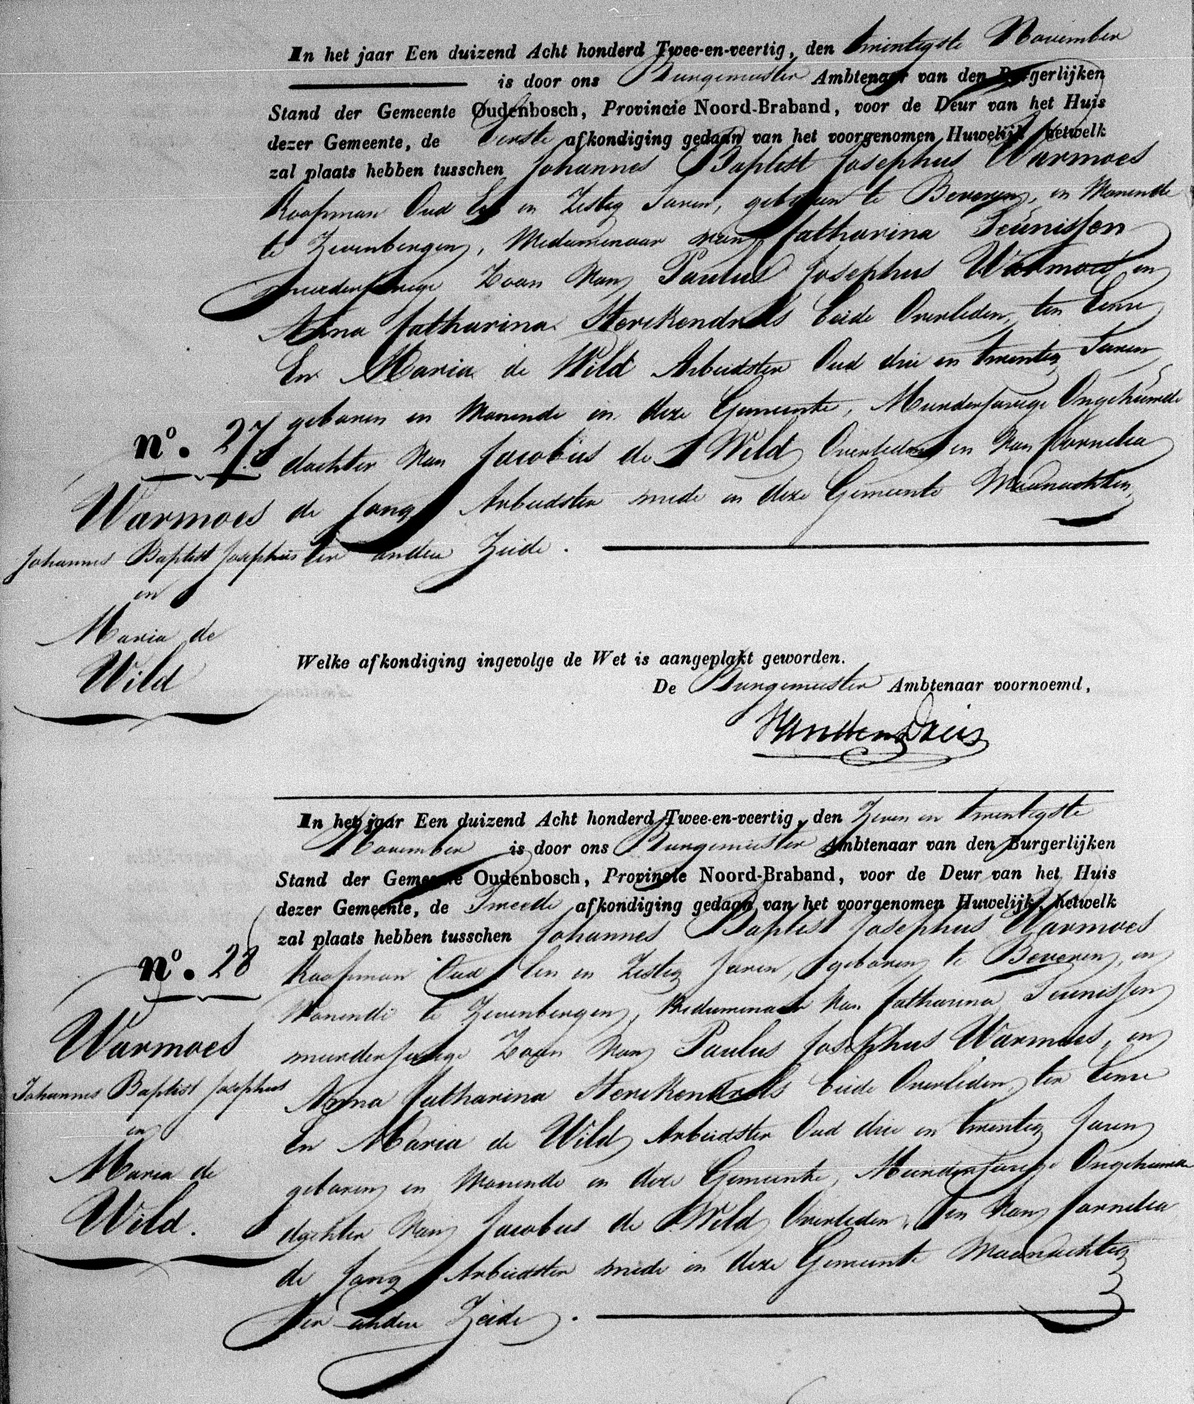 In het jaar Een duizend Acht honderd Twee-en-veertig, den twintigste November
is door ons Burgemeester Ambtenaar van den Burgerlijken
Stand der Gemeente Oudenbosch, Provincie Noord-Braband, voor de Deur van het Huis
dezer Gemeente, de Eerste afkondiging gedaan van het voorgenomen Huwelijk, hetwelk
zal plaats hebben tusschen Johannes Baptist Josephus Warmoes
Koopman Oud Een en Zestig Jaren, geboren te Beveren, en Wonende
te Zevenbergen, Weduwenaar van Catharina Teunissen
meerderjarige Zoon van Paulus Josephus Warmoes en
Anna Catharina Sterckendries beide Overleden, ten Eenre
En Maria de Wild Arbeidster Oud drie en twintig Jaren,
geboren en Wonende in deze Gemeente, Meerderjarige Ongehuwde
No. 27
dochter van Jacobus de Wild Overleden en van Cornelia
Warmoes
de Jong Arbeidster mede in deze Gemeente Woonachtig
Johannes Baptist Josephus
ter andere Zeide.
en
Maria de
Wild
Welke afkondiging ingevolge de Wet is aangeplakt geworden.
De Burgemeester Ambtenaar voornoemd,
In het jaar Een duizend Acht honderd Twee-en-veertig, den Zeven en twintigste
November is door ons Burgemeester Ambtenaar van den Burgerlijken
Stand der Gemeente Oudenbosch, Provincie Noord-Braband, voor de Deur van het Huis
dezer Gemeente, de Tweede afkondiging gedaan van het voorgenomen Huwelijk, hetwelk
zal plaats hebben tusschen Johannes Baptist Josephus Warmoes
No. 28
Koopman Oud Een en Zestig Jaren, geboren te Beveren, en
Wonende te Zevenbergen, Weduwenaar van Catharina Teunissen
Warmoes
meerderjarige Zoon van Paulus Josephus Warmoes, en
Johannes Baptist Josephus
Anna Catharina Sterckendries beide Overleden, ten Eenre
en
En Maria de Wild Arbeidster Oud drie en twintig Jaren
Maria de
geboren en Wonende in deze Gemeente, Meerderjarige Ongehuwde
Wild.
dochter van Jacobus de Wild Overleden, en van Cornelia
de Jong Arbeidster mede in deze Gemeente Woonachtig
ter andere Zeide.